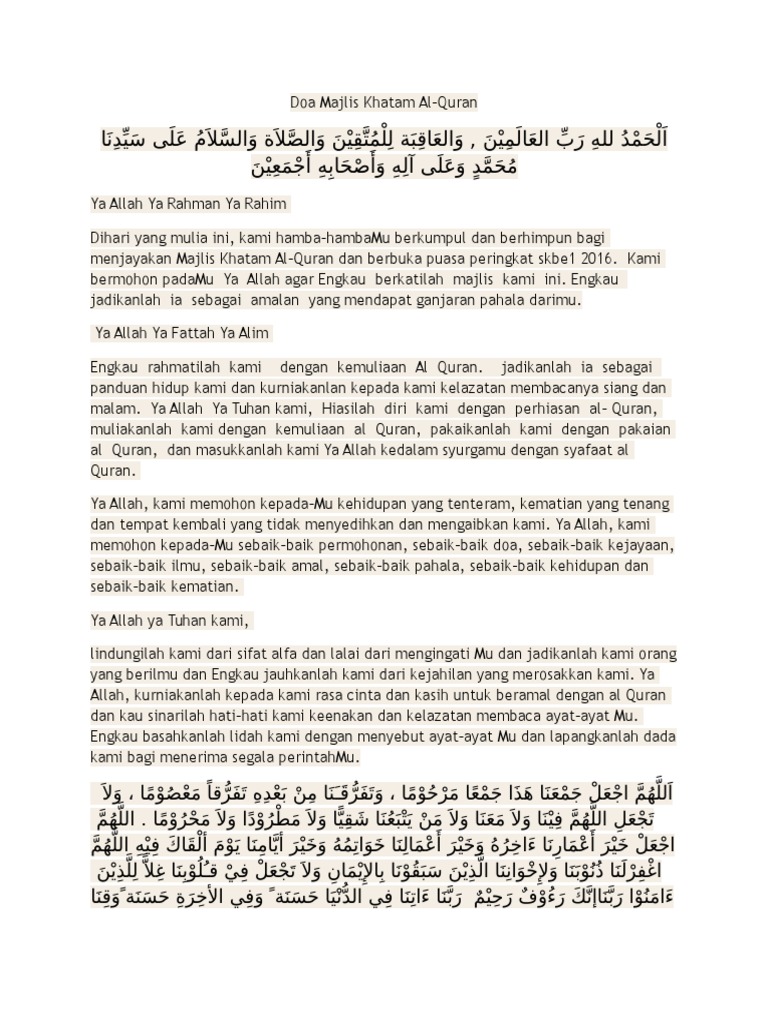 Doa Majlis Khatam Al-Quran
اَلْحَمْدُ للهِ رَبِّ العَالَمِيْنَ , وَالعَاقِبَة لِلْمُتَّقِيْنَ وَالصَّلاَة وَالسَّلاَمُ عَلَى سَيِّدِنَا
مُحَمَّدٍ وَعَلَى آلِهِ وَأَصْحَابِهِ أَجْمَعِيْنَ
Ya Allah Ya Rahman Ya Rahim
Dihari yang mulia ini, kami hamba-hambaMu berkumpul dan berhimpun bagi
menjayakan Majlis Khatam Al-Quran dan berbuka puasa peringkat skbe1 2016. Kami
bermohon padaMu Ya Allah agar Engkau berkatilah majlis kami ini. Engkau
jadikanlah ia sebagai amalan yang mendapat ganjaran pahala darimu.
Ya Allah Ya Fattah Ya Alim
Engkau rahmatilah kami dengan kemuliaan Al Quran. jadikanlah ia sebagai
panduan hidup kami dan kurniakanlan kepada kami kelazatan membacanya siang dan
malam. Ya Allah Ya Tuhan kami, Hiasilah diri kami dengan perhiasan al- Quran,
muliakanlah kami dengan kemuliaan al Quran, pakaikanlah kami dengan pakaian
al Quran, dan masukkanlah kami Ya Allah kedalam syurgamu dengan syafaat al
Quran.
Ya Allah, kami memohon kepada-Mu kehidupan yang tenteram, kematian yang tenang
dan tempat kembali yang tidak menyedihkan dan mengaibkan kami. Ya Allah, kami
memohon kepada-Mu sebaik-baik permohonan, sebaik-baik doa, sebaik-baik kejayaan,
sebaik-baik ilmu, sebaik-baik amal, sebaik-baik pahala, sebaik-baik kehidupan dan
sebaik-baik kematian.
Ya Allah ya Tuhan kami,
lindungilah kami dari sifat alfa dan lalai dari mengingati Mu dan jadikanlah kami orang
yang berilmu dan Engkau jauhkanlah kami dari kejahilan yang merosakkan kami. Ya
Allah, kurniakanlah kepada kami rasa cinta dan kasih untuk beramal dengan al Quran
dan kau sinarilah hati-hati kami keenakan dan kelazatan membaca ayat-ayat Mu.
Engkau basahkanlah lidah kami dengan menyebut ayat-ayat Mu dan lapangkanlah dada
kami bagi menerima segala perintahMu.
اَللَّهُمَّ اجْعَلْ جَمْعَنَا هَذَا جَمْعًا مَرْحُوْمًا ، وَتَفَرُّقَـنَا مِنْ بَعْدِهِ تَفَرُّقاً مَعْصُوْمًا ، وَلاَ
تَجْعَلِ اللَّهُمَّ فِيْنَا وَلاَ مَعَنَا وَلاَ مَنْ يَتْبَعُنَا شَقِيًّا وَلاَ مَطْرُوْدًا وَلاَ مَحْرُوْمًا . اللَّهُمَّ
اجْعَلْ خَيْرَ أَعْمَارِنَا ءَاخِرُهُ وَخَيْرَ أَعْمَالِنَا خَوَاتِمُهُ وَخَيْرَ أيَّامِنَا يَوْمَ أَلْقَاكَ فِيْهِ اللَّهُمَّ
اغْفِرْلَنَا ذُنُوْبَنَا وَلإِخْوَانِنَا الَّذِيْنَ سَبَقُوْنَا بِالإِيْمَانِ وَلاَ تَجْعَلْ فِيْ قـُلُوْبِنَا غِلاًّ لِلَّذِيْنَ
ءَامَنُوْا رَبَّنَاإِنَّكَ رَءُوْفٌ رَحِيْمٌ رَبَّنَا ءَاتِنَا فِي الدُّنْيَا حَسَنَة ً وَفِي الأخِرَةِ حَسَنَة ًوَقِنَا